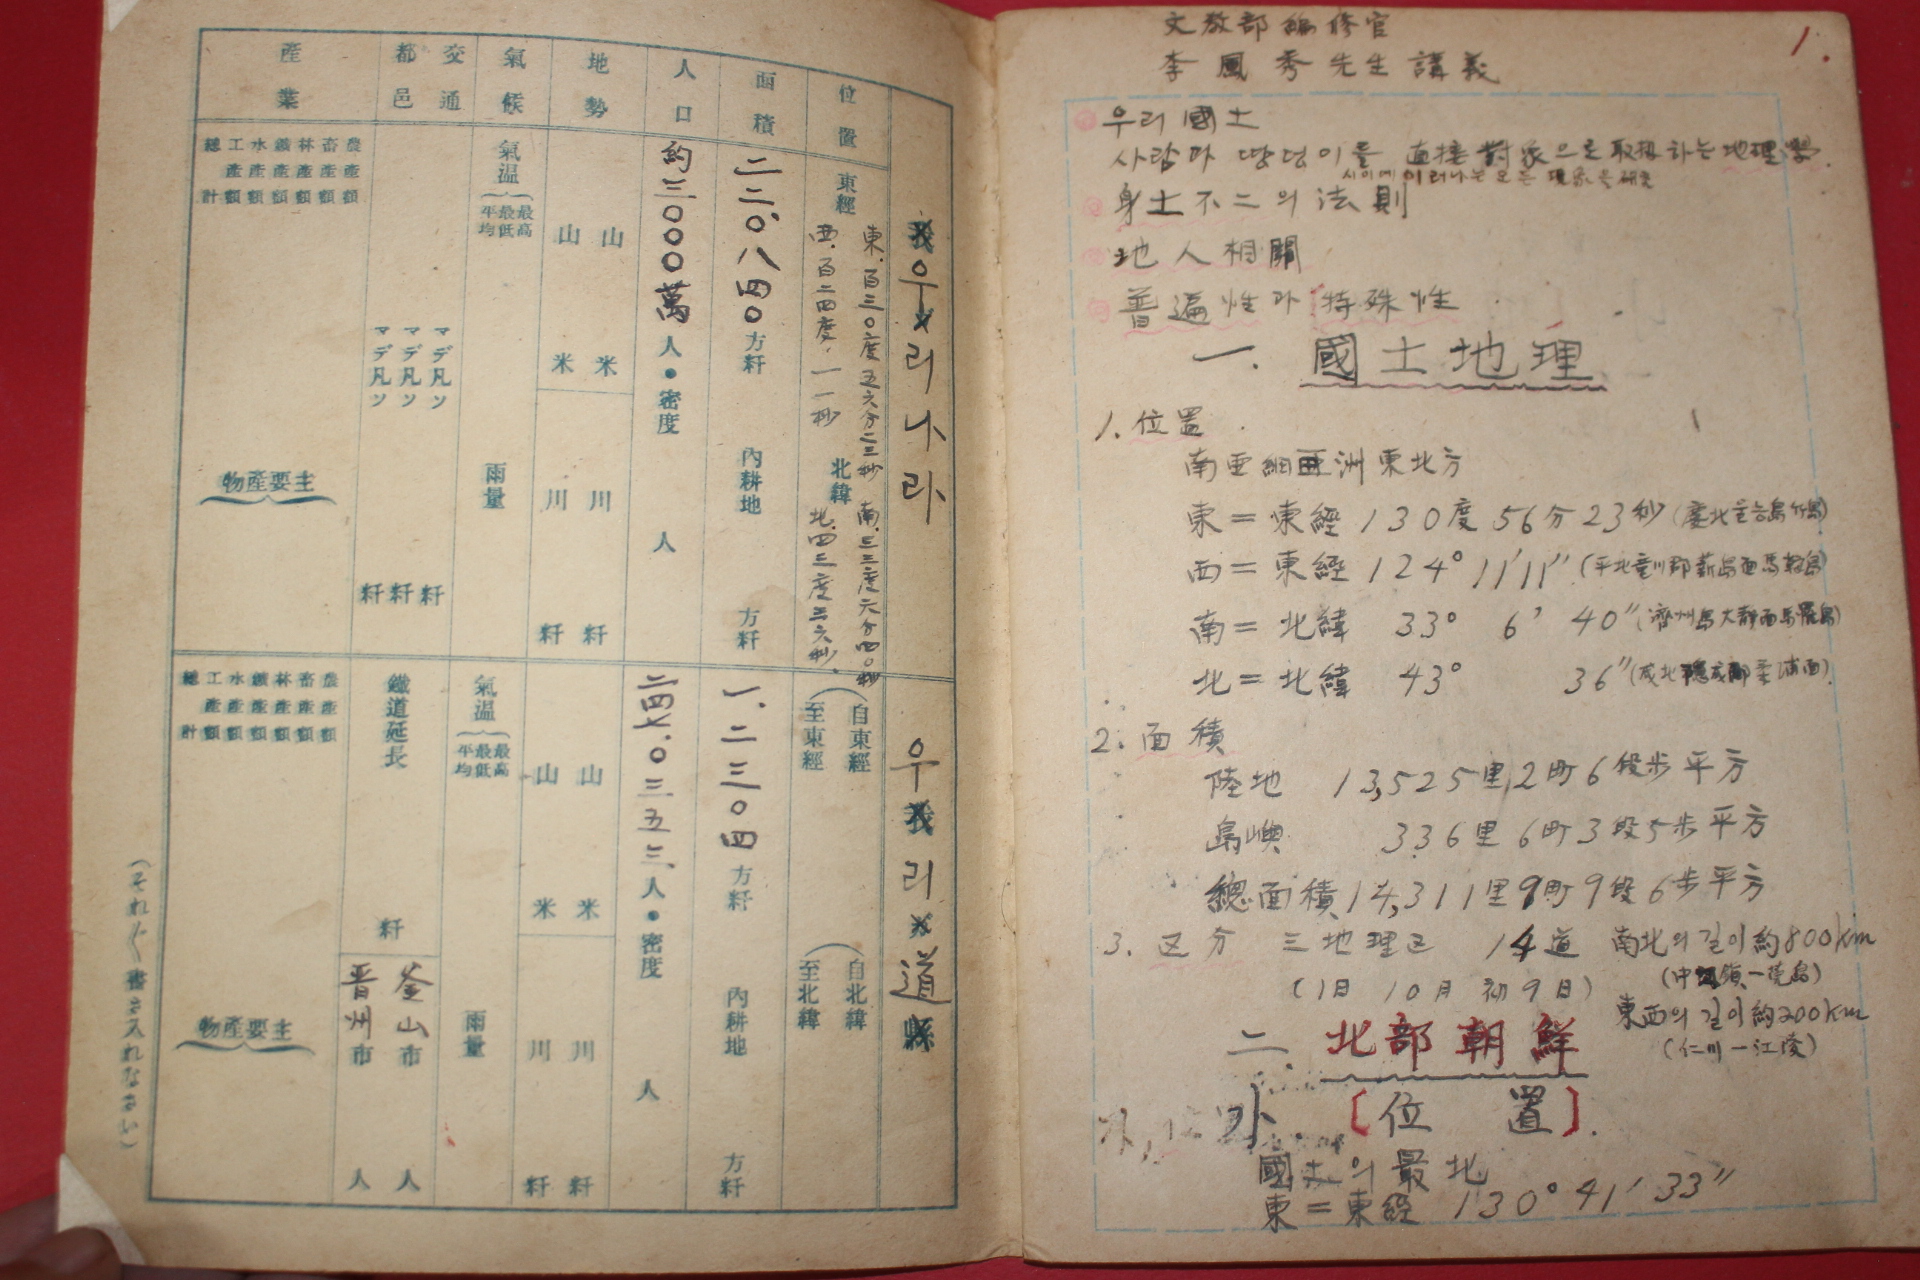 文敎部編修官
李鳳秀先生講義
1.
우리 國土
사람과 땅덩이를 直接 對象으로 取扱하는 地理學.
사이에 이러나는 모든 現象을 硏究
身土不二의 法則
地人相關
普遍性과 特殊性
一. 國土地理
1. 位置
南亞細亞洲東北方
東＝東經 130度 56分 23秒
西＝東經 124° 11′11″
南＝北緯 33° 6′ 40″(濟州島大靜面馬羅島)
北＝北緯 43° 36″
2. 面積
陸地 13,525里,2町6段步平方
島嶼 336里6町3段5步平方
總面積 14,311里9町9段6步平方
3. 区分 三地理区 14道
(1日 10月 初9日)
南北의 길이 約800km
東西의 길이 約200km
(仁川一江陵)
二. 北部朝鮮
가. [位置].
國土의 最北
東＝東經 130° 41′ 33″
우리나라
位置
東經
東.百三〇度五六分二三秒
西.百二四度.一一秒
北緯
南.三三度六分四〇秒
北.四三度三六秒.
面積
二二〇.八四〇方粁
內耕地
方粁
人口
約三〇〇〇萬人●密度
人
地勢
山 米
山 米
川 粁
川 粁
氣候
氣温 最高 最低 平均
雨量
交通
都邑
マデ凡ソ 粁
マデ凡ソ 粁
マデ凡ソ 粁
産業
農産額
畜産額
林産額
鑛産額
水産額
工産額
總計
主要産物
우리道
縣
自東經
至東經
自北緯
至北緯
一.二三〇四方粁
內耕地
方粁
二四七.〇三五三.人●密度
人
山 米
山 米
川 粁
川 粁
氣温 最高 最低 平均
雨量
鐵道延長
粁
釜山市
人
晋州市
人
農産額
畜産額
林産額
鑛産額
水産額
工産額
總計
主要産物
(それ〴〵書き入れなさい)